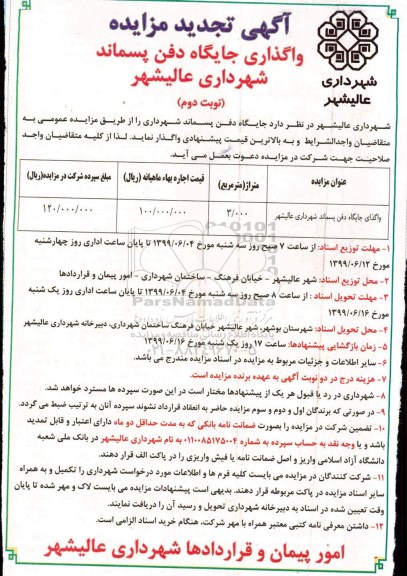 آگهی تجدید مزایده
واگذاری جایگاه دفن پسماند
شهرداری عالیشهر
(نوبت دوم)
شهرداری
عالیشهر
شهرداری عالیشهر در نظر دارد جایگاه دفن پسماند شهرداری را از طریق مزایده عمومی به
متقاضیان واجدالشرایط و به بالاترین قیمت پیشنهادی واگذار نماید. لذا از کلیه متقاضیان واجد
صلاحیت جهت شرکت در مزایده دعوت بعمل می آید.
عنوان مزایده متراژ(مترمربع) قیمت اجاره بهاء ماهیانه (ریال) مبلغ سپرده شرکت در مزایده(ریال)
واگذای جایگاه دفن پسماند شهرداری عالیشهر ۳/۰۰۰ ۱۰۰/۰۰۰/۰۰۰ ۱۲۰/۰۰۰/۰۰۰
۱- مهلت توزیع اسناد: از ساعت ۷ صبح روز سه شنبه مورخ ۱۳۹۹/۰۶/۰۴ تا پایان ساعت اداری روز چهارشنبه
مورخ ۱۳۹۹/۰۶/۱۲
۲- محل توزیع اسناد: شهر عالیشهر - خیابان فرهنگ - ساختمان شهرداری - امور پیمان و قراردادها
۳- مهلت تحویل اسناد : از ساعت ۸ صبح روز سه شنبه مورخ ۱۳۹۹/۰۶/۰۴ تا پایان ساعت اداری روز یک شنبه
مورخ ۱۳۹۹/۰۶/۱۶
۴- محل تحویل اسناد: شهرستان بوشهر، شهر عالیشهر خیابان فرهنگ ساختمان شهرداری، دبیرخانه شهرداری عالیشهر
۵- زمان بازگشایی پیشنهادها: ساعت ۱۷ روز یک شنبه مورخ ۱۳۹۹/۰۶/۱۶
۶- سایر اطلاعات و جزئیات مربوط به مزایده در اسناد مزایده مندرج می باشد.
۷- هزینه درج در دو نوبت آگهی به عهده برنده مزایده است.
۸- شهرداری در رد یا قبول هر یک از پیشنهادها مختار است در این صورت سپرده ها مسترد خواهد شد.
۹- در صورتی که برندگان اول و دوم و سوم مزایده حاضر به انعقاد قرارداد نشوند سپرده آنان به ترتیب ضبط می گردد.
۱۰- تضمین شرکت در مزایده را بصورت ضمانت نامه بانکی که به مدت حداقل دو ماه دارای اعتبار و قابل تمدید
باشد و یا وجه نقد به حساب سپرده به شماره ۰۱۱۰۰۸۵۱۷۵۰۰۴ به نام شهرداری عالیشهر در بانک ملی شعبه
دانشگاه آزاد اسلامی واریز و اصل ضمانت نامه یا فیش واریزی را در پاکت الف قرار دهند.
۱۱- شرکت کنندگان در مزایده می بایست کلیه فرم ها و اطلاعات مورد درخواست شهرداری را تکمیل و به همراه
سایر اسناد مزایده در پاکت مربوطه قرار دهند. بدیهی است پیشنهادات مزایده می بایست لاک و مهر شده تا پایان
وقت تعیین شده در اسناد به دبیرخانه شهرداری تحویل و رسید آن را دریافت نمایند.
۱۲- داشتن معرفی نامه کتبی معتبر همراه با مهر شرکت، هنگام خرید اسناد الزامی است.
امور پیمان و قراردادها شهرداری عالیشهر